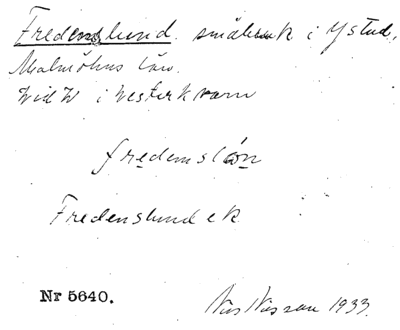 Fredenslund. småbruk i Ystad,
Malmöhus län.
Wid W i Westerkvarn
fredenslón
Fredenslund ek
Nr 5640.
Nils Nilsson 1933.